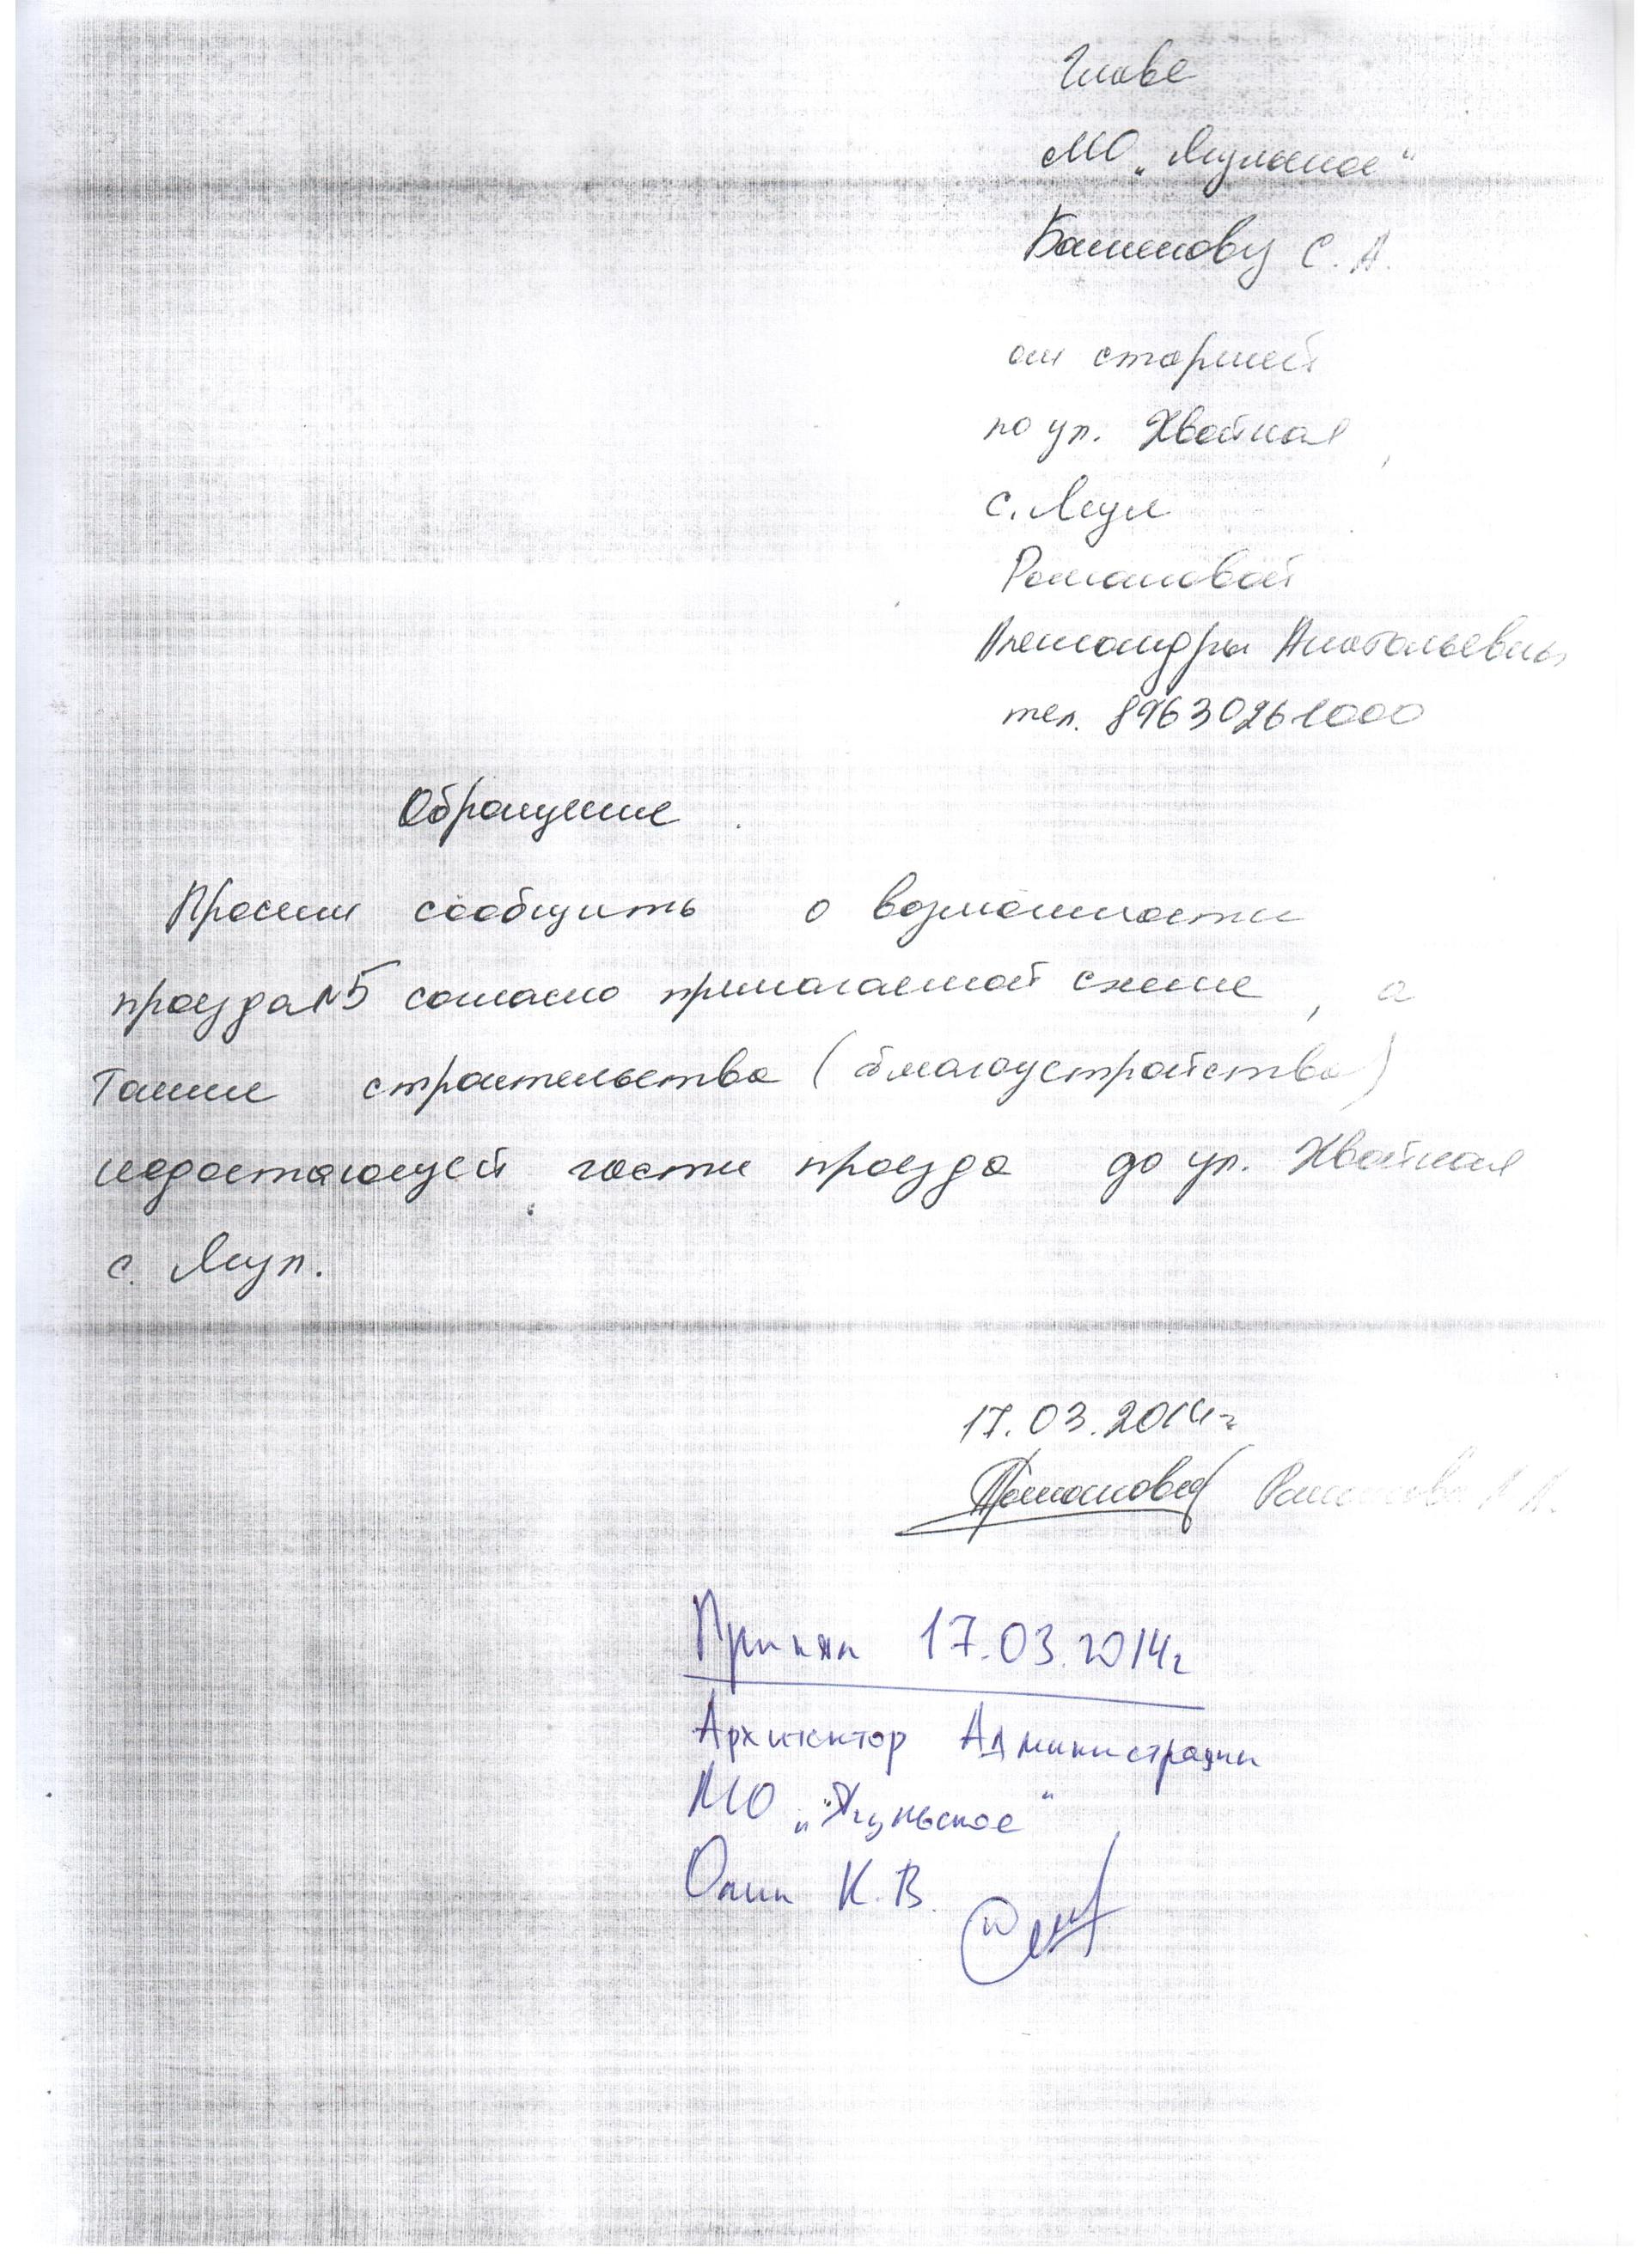 Главе
МО „Ягульское"
Баженову С. А.
от старшей
по ул. Хвойная,
с. Ягул
Романовой
Александры Анатольевны
тел. 89630261000
Обращение.
Просим сообщить о возможности
проезда №5 согласно прилагаемой схеме, а
также строительства (благоустройства)
недостающей части проезда до ул. Хвойная
с. Ягул.
17.03.2014г
Романова Романова А.А.
Принял 17.03.2014г
Архитектор Администрации
МО „Ягульское"
К.В.